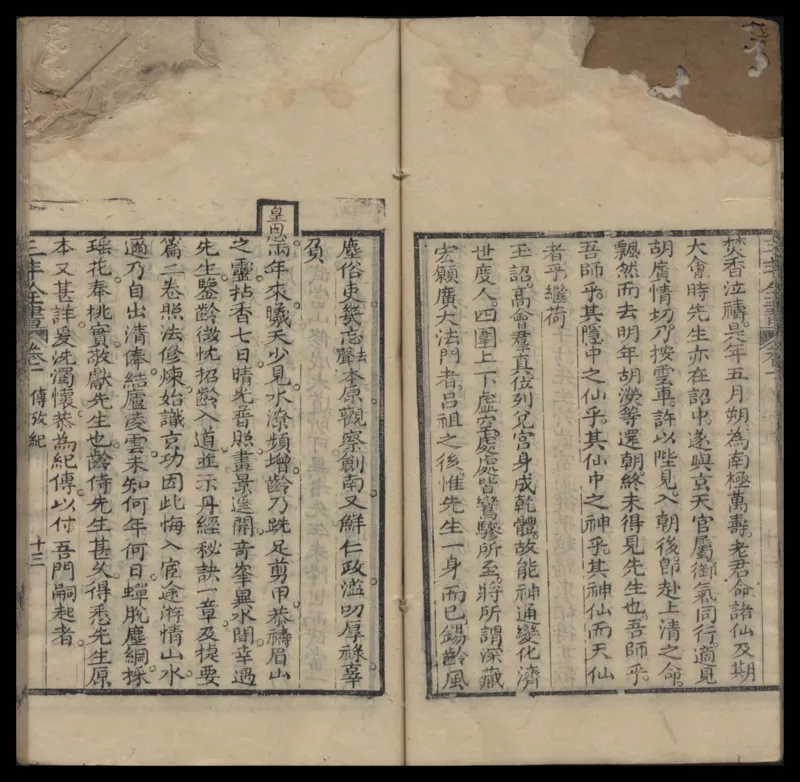 焚香泣禱。是年五月朔。為南極萬壽。老君命諸仙及期
大會時先生亦在詔中。遂與玄天官屬御氣同行。適見
胡廣情切。乃按雲車。許以陛見。入朝後。即赴上清之命。
飄然而去。明年胡濙等還朝。終未得見先生也。吾師乎。
吾師乎。其隱中之仙乎。其仙中之神乎。其神仙而天仙
者乎。繼荷
玉詔。高會羣真。位列兌宮。身成乾體。故能神通變化。濟
世度人。四圍上下虛空。處處皆鸞驂所至。將所謂深藏
宏願廣大法門者。呂祖之後。惟先生一身而已。錫齡風
塵俗吏。幾忘本原。觀察劍南。又鮮仁政。濫叨厚祿。辜
負
皇恩。年來曦天少見。水潦頻增。齡乃跣足剪甲。恭禱眉山
之靈。拈香七日。晴光普照。晝景遥開。奇峯異水閒。幸過
先生鑒齡微忱。招齡入道。並示丹經秘訣一章。及捷要
篇二卷。照法修煉。始識玄功。因此悔入宦途。游情山水。
適乃自出清俸。結廬凌雲。未知何年何日。蟬脫塵網。採
瑤花。奉桃實。敬獻先生也。齡侍先生甚久。得悉先生原
本又甚詳。爰洗濁懷。恭為紀傳。以付吾門嗣起者。
三丰全書 卷一 傳攷紀 十三